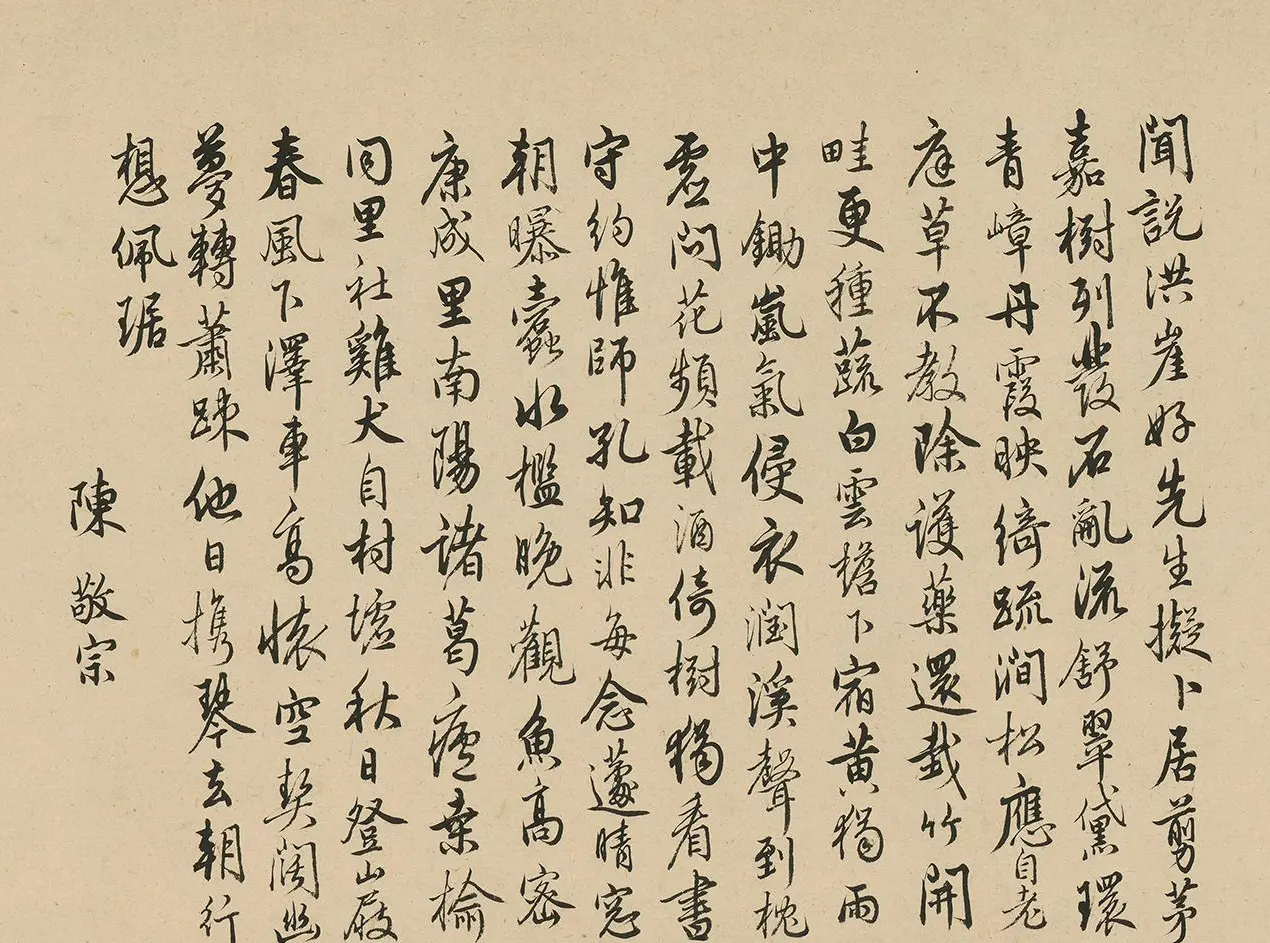 聞說洪崖好先生擬卜居剪茅
嘉樹列石亂流舒翠黛環
青嶂丹霞映綺疏澗松應自老
庭草不教除護藥還栽竹開
畦更種蔬白雲檐下宿黃獨雨
中鋤嵐氣侵衣潤溪聲到枕
虛問花頻載酒倚樹獨看書
守約惟師孔知非每念蘧晴窓
朝曝蠹水檻晚觀魚高密
康成里南陽諸葛廬桑榆
同里社雞犬自村墟秋日登山屐
春風下澤車高懷空契闊幽
夢轉蕭踈他日携琴去朝行
想佩琚
陳敬宗